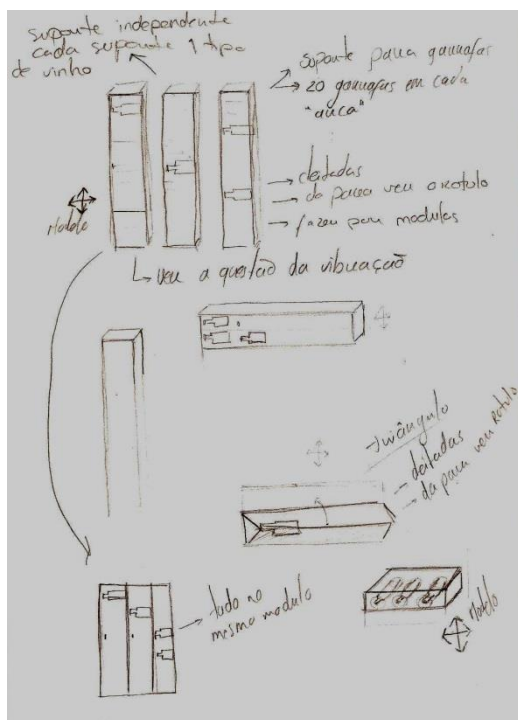 suporte independente
cada suporte 1 tipo
de vinho
suporte para garrafas
20 garrafas em cada
"arca"
deitadas
da para ver o rotulo
fazer por modulos
Modelo
ver a questão da vibração
triângulo
deitadas
da para ver rotulo
tudo no
mesmo modulo
Modelo